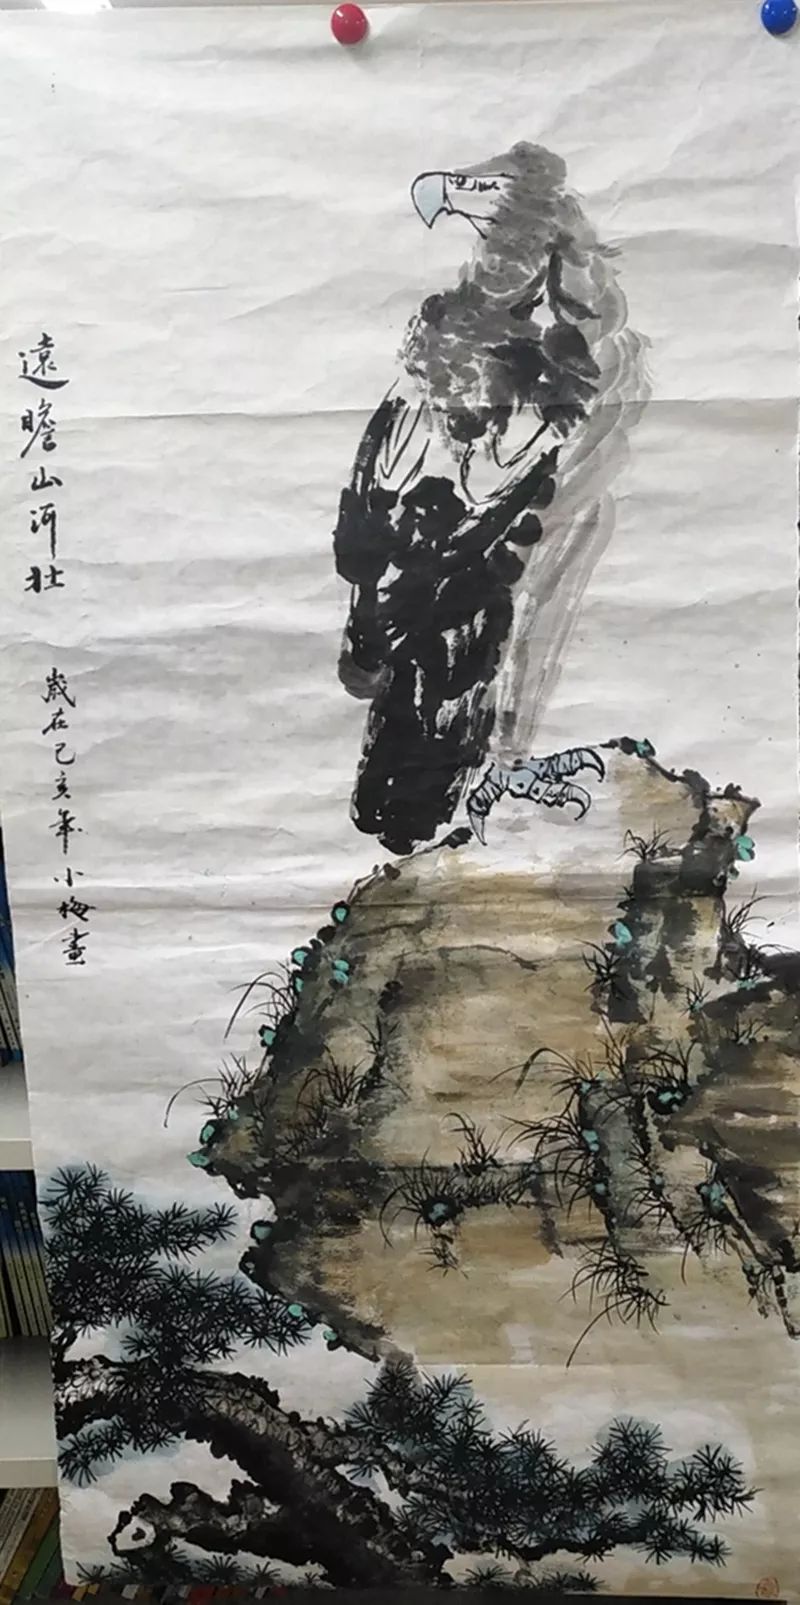 遠瞻山河壯
歲在己亥年小梅畫